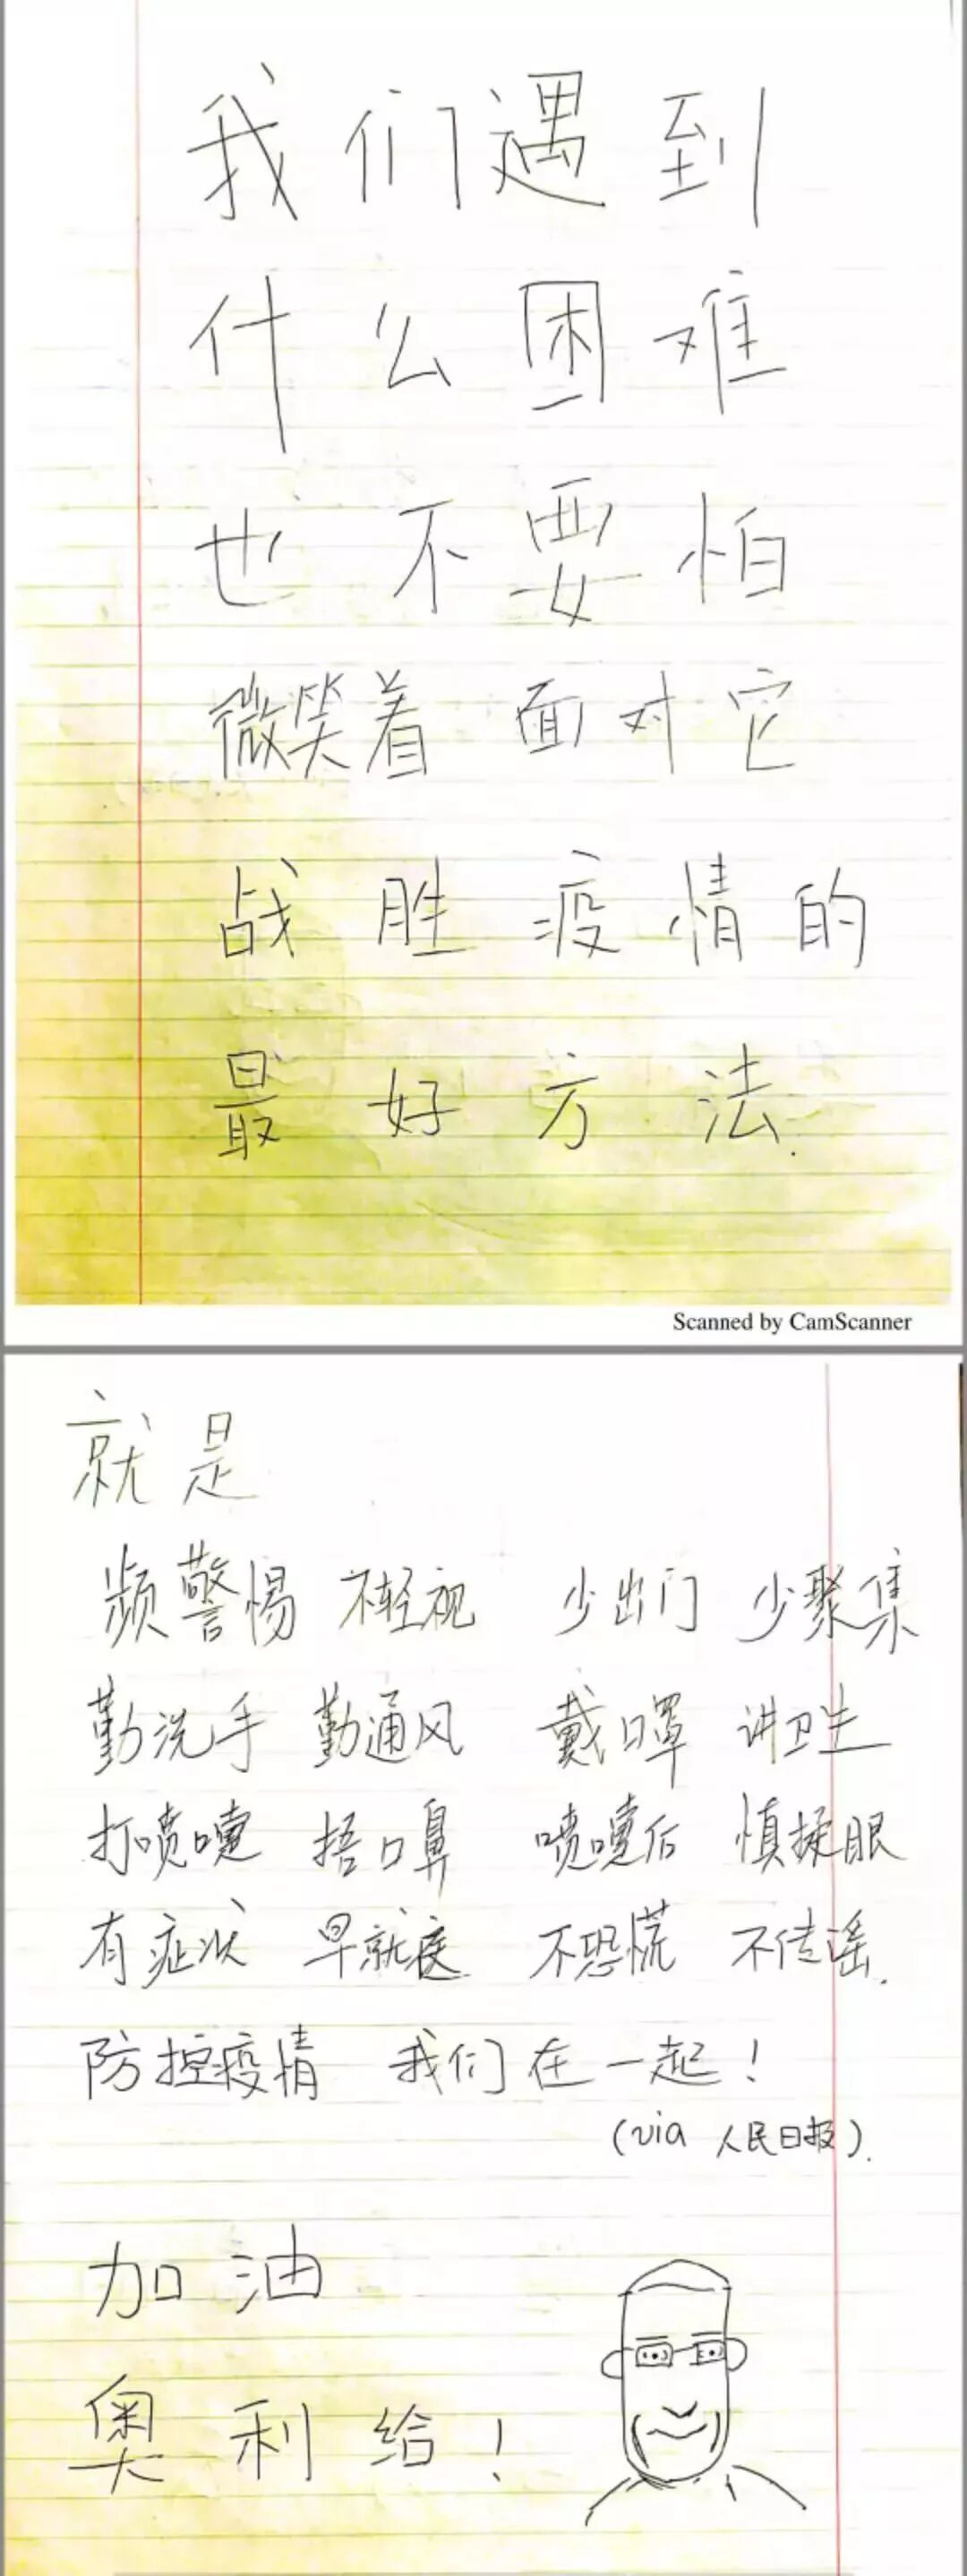 我们遇到
什么困难
也不要怕
微笑着 面对它
战胜疫情的
最好方法.
Scanned by CamScanner
就是
频警惕 不轻视 少出门 少聚集
勤洗手 勤通风 戴口罩 讲卫生
打喷嚏 捂口鼻 喷嚏后 慎揉眼
有症状 早就医 不恐慌 不传谣.
防控疫情 我们在一起!
(via 人民日报).
加油
奥利给!